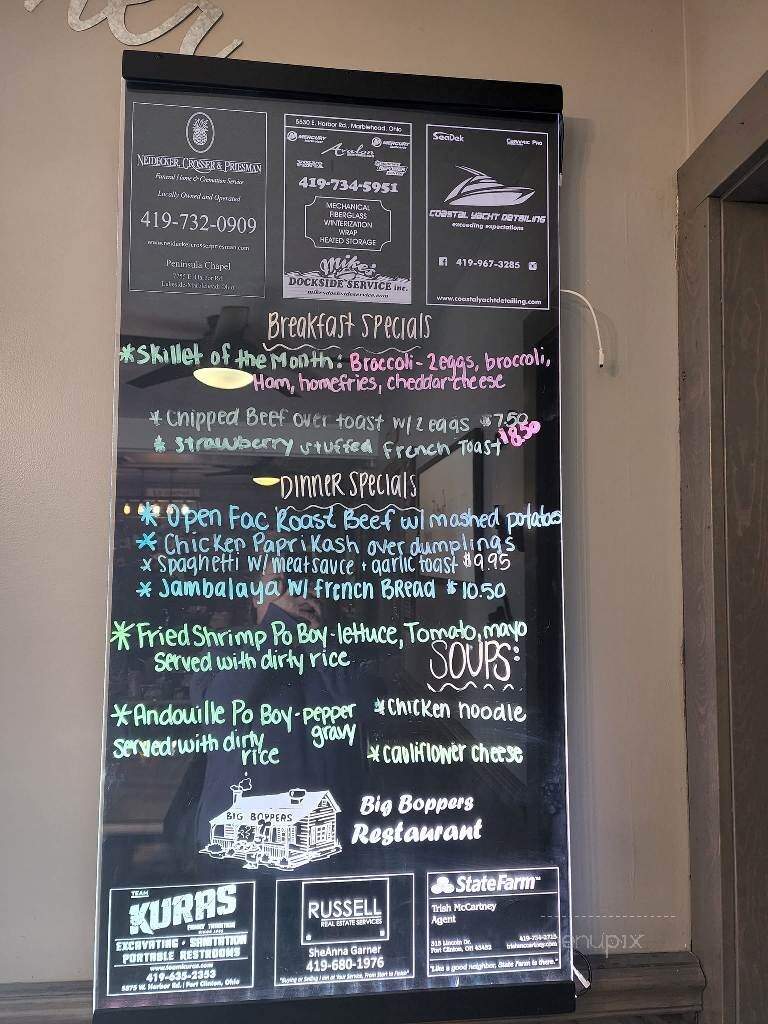 ner
NEIDECKER, CROSSER & PRIESMAN
Funeral Home & Cremation Service
Locally Owned and Operated
419-732-0909
www.neideckercrosserpriesman.com
Peninsula Chapel
5530 E. Harbor Rd., Marblehead, Ohio
MERCURY
Avalon
MERCURY
419-734-5951
MECHANICAL
FIBERGLASS
WINTERIZATION
WRAP
HEATED STORAGE
Mike's
DOCKSIDE SERVICE inc.
mikesdocksideservice.com
SeaDek
Ceramic Pro
COASTAL YACHT DETAILING
exceeding expectations
419-967-3285
www.coastalyachtdetailing.com
Breakfast Specials
*Skillet of the Month: Broccoli-2eggs, broccoli,
Ham, homefries, cheddar cheese
* Chipped Beef over toast w/ 2 eggs $7.50
* Strawberry stuffed French Toast $8.50
Dinner Specials
* Open Fac Roast Beef w/ mashed potatoes
* Chicken Paprikash over dumplings
* Spaghetti w/ meatsauce + garlic toast $9.95
* Jambalaya w/ french BRead $10.50
*Fried Shrimp Po Boy-lettuce, Tomato, mayo
served with dirty rice
SOUPS:
*Andouille Po Boy-pepper
gravy
served with dirty
rice
*chicken noodle
*cauliflower cheese
BIG BOPPERS
Big Boppers
Restaurant
TEAM
KURAS
FAMILY TRADITION
EXCAVATING • SANITATION
PORTABLE RESTROOMS
www.teamkuras.com
419-635-2353
5875 W. Harbor Rd. | Port Clinton, Ohio
RUSSELL
REAL ESTATE SERVICES
SheAnna Garner
419-680-1976
"Buying or Selling I am at Your Service, From Start to Finish"
StateFarm™
Trish McCartney
Agent
315 Lincoln Dr.
Port Clinton, OH 43452
419-734-2715
trishmccartney.com
"Like a good neighbor, State Farm is there."
menupix